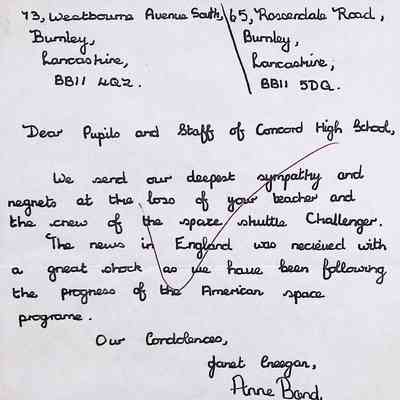 73, Westbourne Avenue South, 65, Rosendale Road,
Burnley, Burnley,
Lancashire, Lancashire,
BB11 4QZ. BB11 5DQ.
Dear Pupils and Staff of Concord High School,
We send our deepest sympathy and
negrets at the loss of your teacher and
the crew of the space shuttle Challenger.
The news in England was recieved with
a great shock as we have been following
the progress of the American space
programe.
Our Condolences,
Janet Creegan,
Anne Bond.